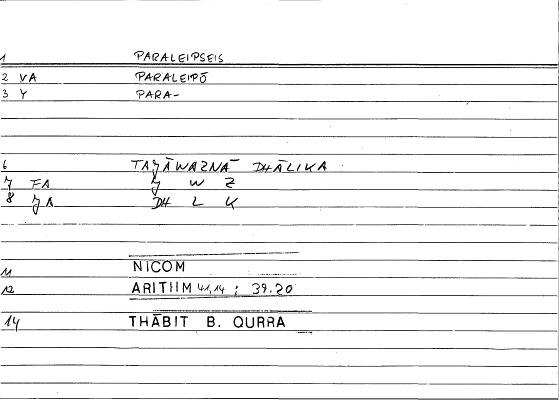 1 PARALEIPSEIS
2 VA PARALEIPŌ
3 Y PARA-
6 TAǦĀWAZNĀ DHĀLIKA
7 FA Ǧ W Z
8 ǦA DH L K
11 NICOM
12 ARITHM 41,14 ; 39.20
14 THĀBIT B. QURRA